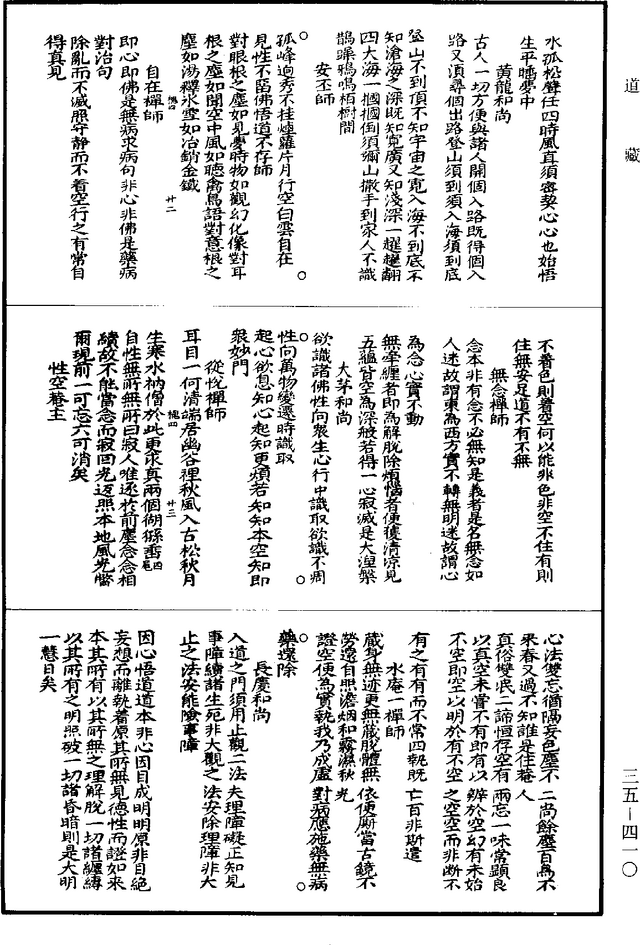 道藏
水孤松聲任四時風直須密契心心也始悟
生平瞌夢中
黃龍和尚
古人一切方便與諸人開個入路既得個入
路又須尋個出路登山須到頂入海須到底
登山不到頂不知宇宙之寬入海不到底不
知滄海之深既知寬廣又知淺深一趯趯翻
四大海一摑摑倒須彌山撒手到家人不識
鵲噪鴉鳴栢樹間
安丕師
孤峰迥秀不挂煙蘿片月行空白雲自在
見性不留佛悟道不存師
對眼根之塵如見夢時物如觀幻化像對耳
根之塵如聞空中風如聽禽鳥語對意根之
塵如湯釋冰雪如冶銷金鐵
槐四
廿二
自在禪師
即心即佛是無病求病句非心非佛是藥病
對治句
除亂而不滅照守靜而不着空行之有常自
得真見
不着色則着空何以能非色非空不住有則
住無安足道不有不無
無念禪師
念本非有念不必無知是義者是名無念如
人迷故謂東為西方實不轉無明迷故謂心
為念心實不動
無牽纏者即為解脫除煩惱者便獲清凉見
五蘊皆空為深般若得一心寂滅是大涅槃
大茅和尚
欲識諸佛性向眾生心行中識取欲識不凋
性向萬物變遷時識取
起心欲息知心起知更煩若知知本空知即
眾妙門
從悅禪師
耳目一何清端居幽谷裡秋風入古松秋月
槐四
廿三
生寒水衲僧於此更求真兩個猢猻垂四尾
自性無所無所曰寂人唯逐於前塵念念相
續故不能當念而寂回光返照本地風光瞥
爾現前一可忘六可消矣
性空菴主
心法雙忘猶隔妄色塵不二尚餘塵百鳥不
來春又過不知誰是住菴人
真俗雙泯二諦恒存空有兩忘一味常顯良
以真空未甞不有即有以辨於空幻有未始
不空即空以明於有不空之空空而非斷不
有之有有而不常四執既亡百非斯遣
水庵一禪師
藏身無迹更無藏脫體無依便厮當古鏡不
勞還自照澹烟和霧濕秋光
證空便為實執我乃成虛對病應施藥無病
藥還除
長慶和尚
入道之門須用止觀二法夫理障礙正知見
事障續諸生死非大觀之法安除理障非大
止之法安能險事障
因心悟道道本非心因目成明明原非目絕
妄想而離執着原其所無見德性而證如來
本其所有以其所無之理解脫一切諸纏縛
以其所有之明照破一切諸昏暗則是大明
一慧日矣
三五—四一〇